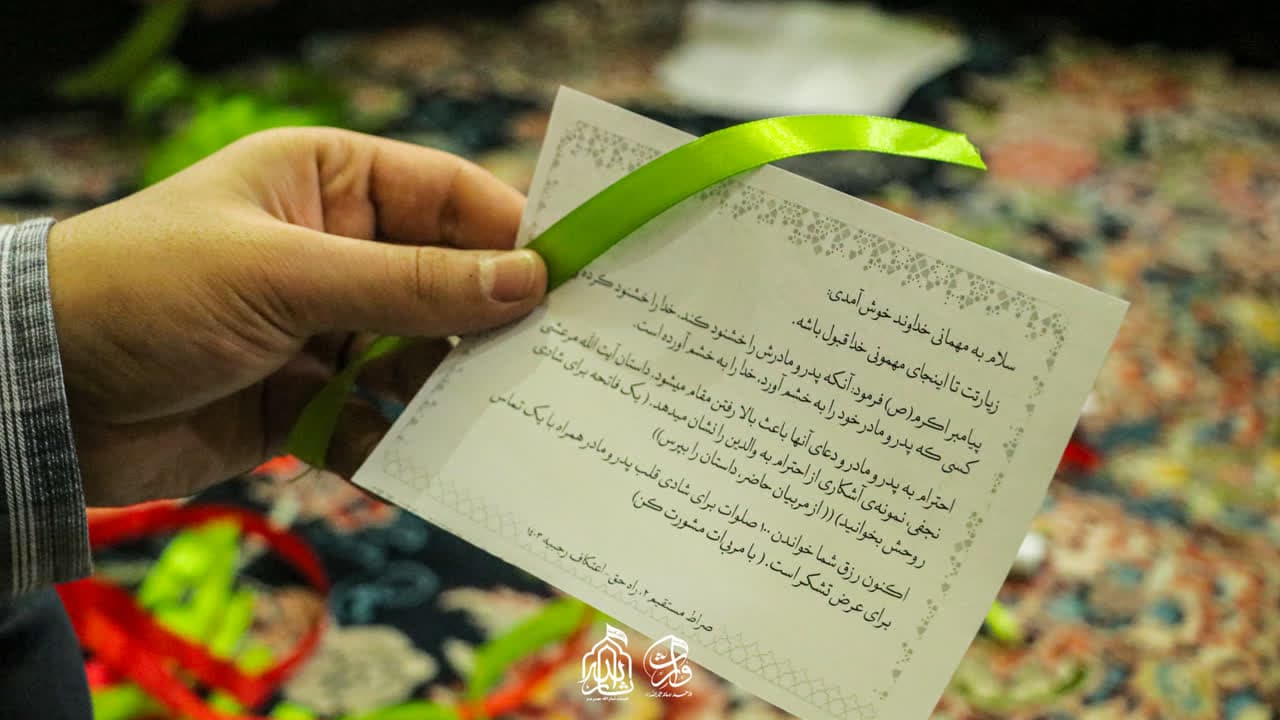 سلام به مهمانی خداوند خوش آمدی:
زیارتت تا اینجای مهمونی خدا قبول باشه.
پیامبر اکرم(ص) فرمود: آنکه پدر و مادرش را خشنود کند، خدا را خشنود کرده و
کسی که پدر و مادر خود را به خشم آورد، خدا را به خشم آورده است.
احترام به پدر و مادر و دعای آنها باعث بالا رفتن مقام میشود. داستان آیت الله مرعشی
نجفی، نمونه‌ی آشکاری از احترام به والدین را نشان میدهد. (یک فاتحه برای شادی
روحش بخوانید) ((از مربیان حاضر، داستان را بپرس))
اکنون رزق شما خواندن ۱۰۰ صلوات برای شادی قلب پدر و مادر همراه با یک تماس
برای عرض تشکر است. (با مربیات مشورت کن)
صراط مستقیم ۲، راه حق، اعتکاف رجبیه ۱۴۰۳